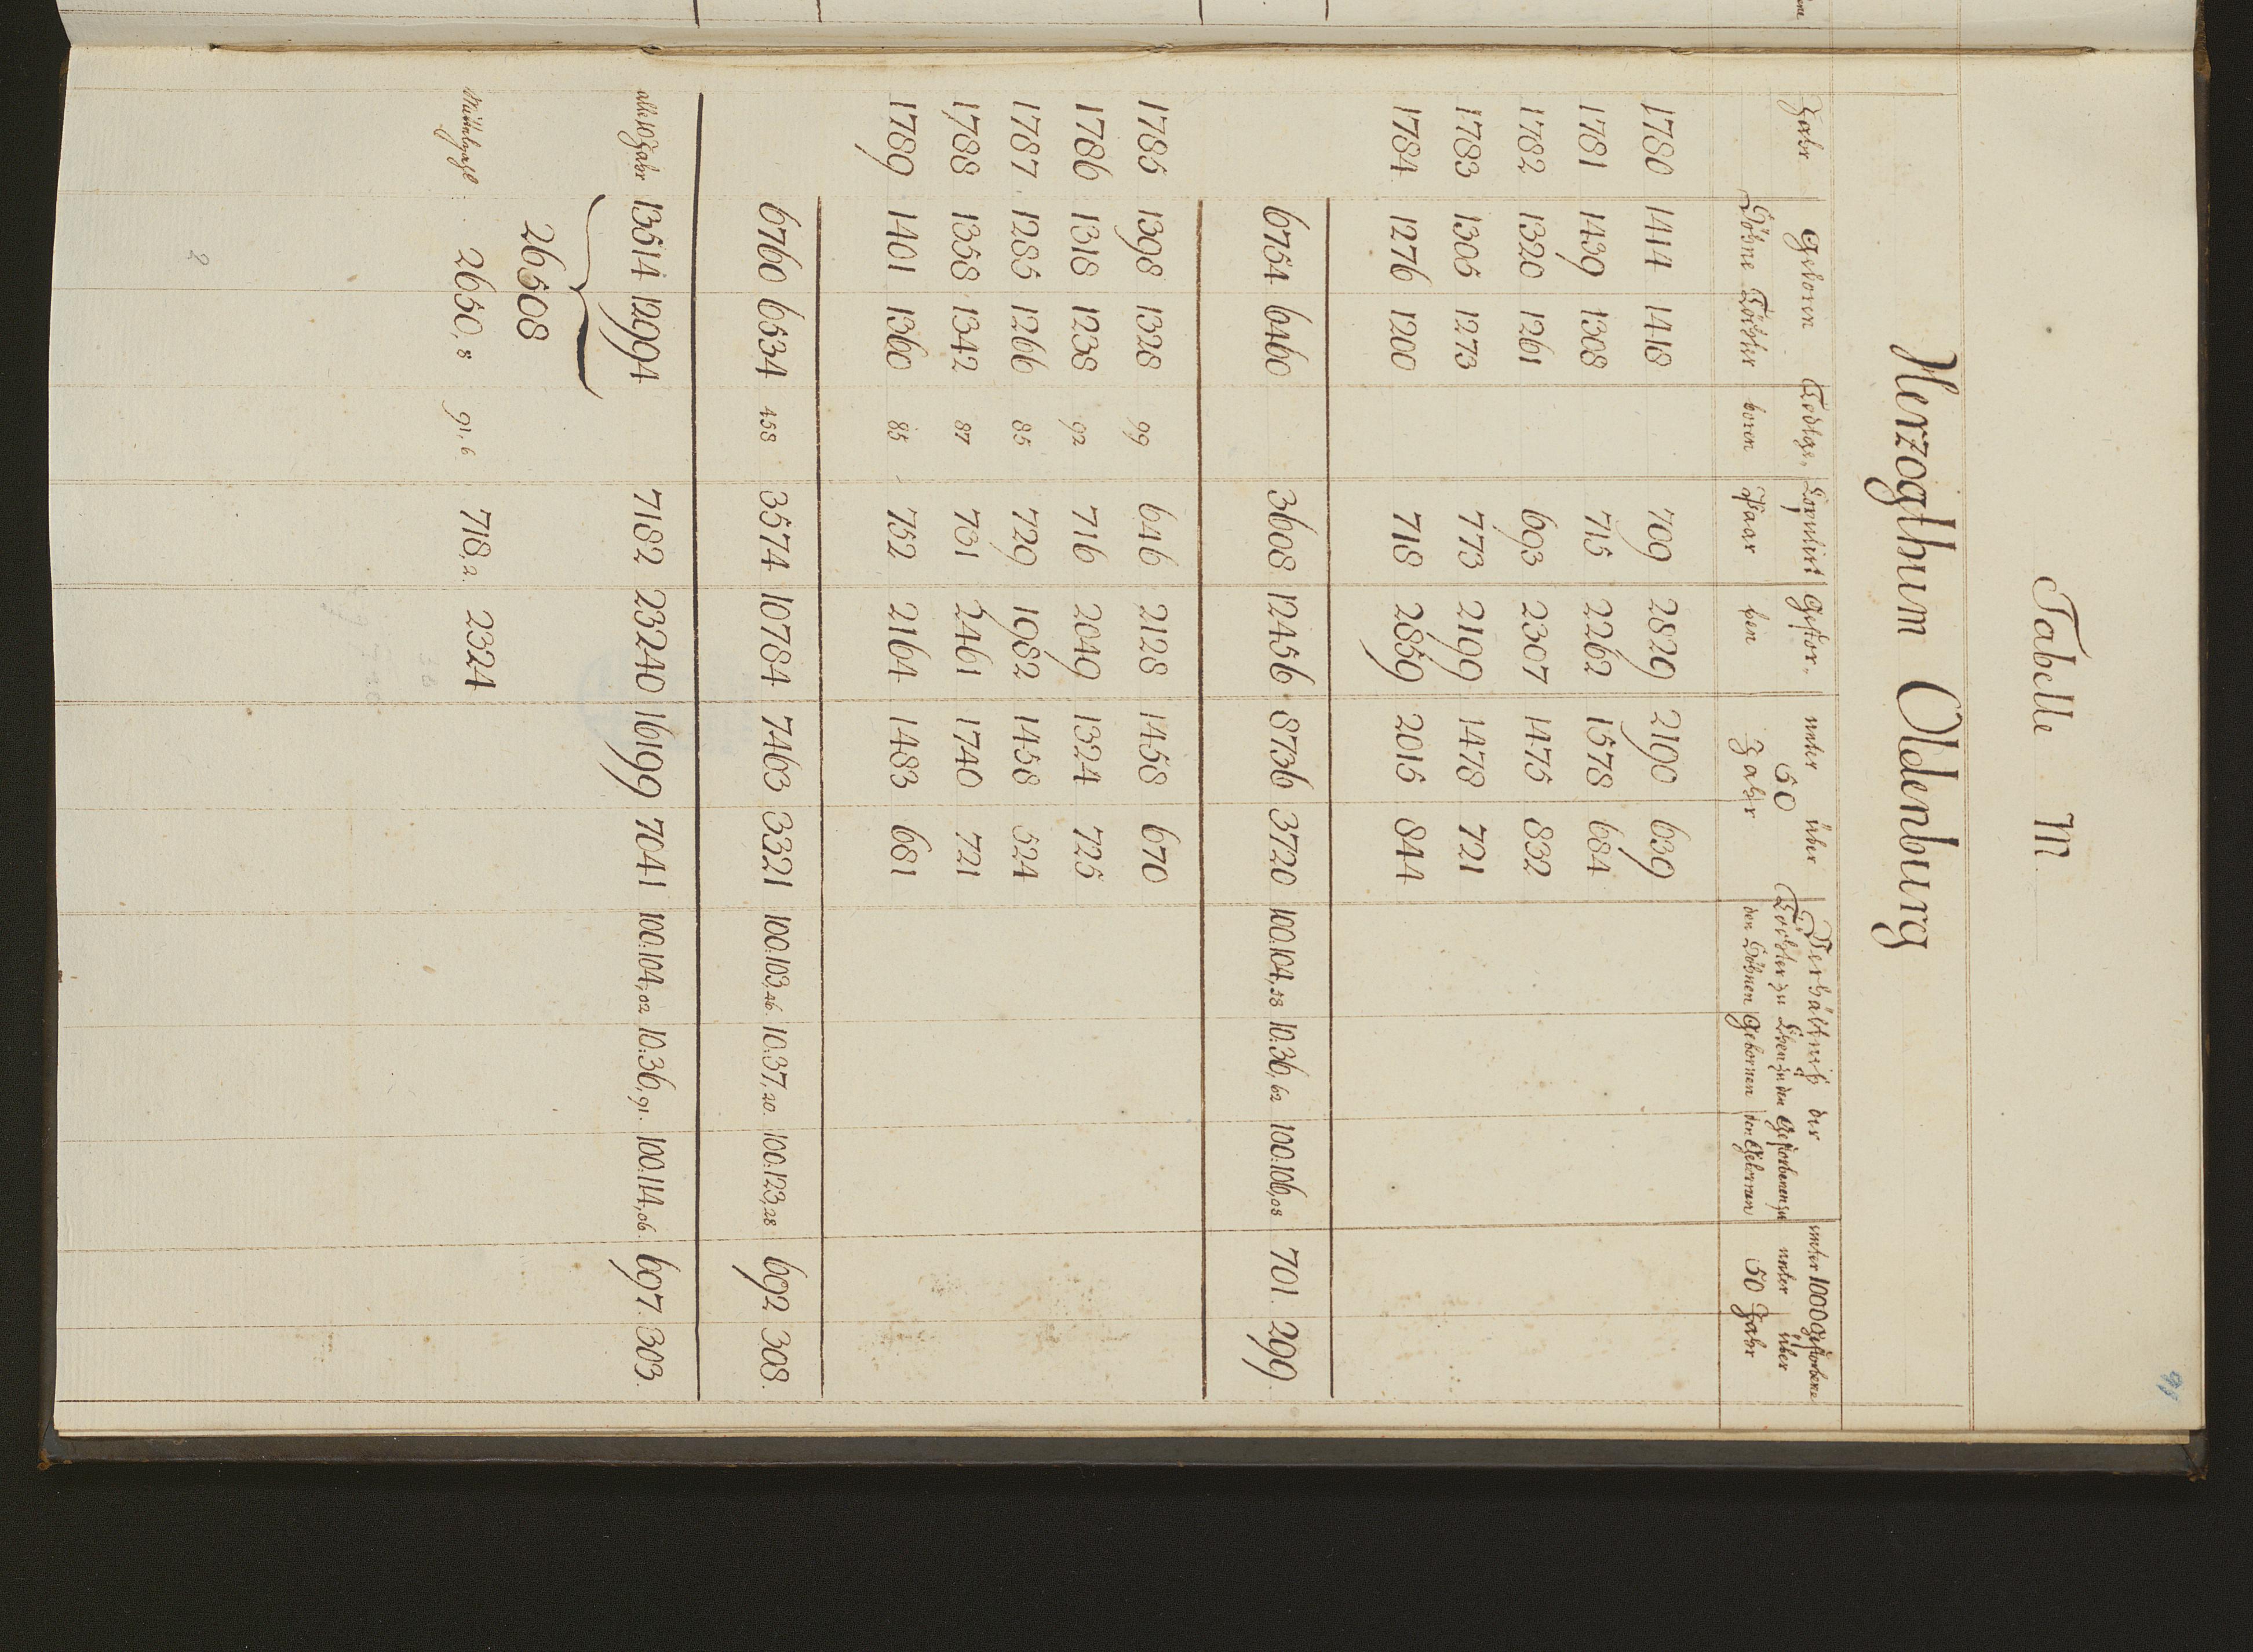 Tabelle M.
Herzogthum Oldenburg
Jahr Geboren Todtge- Copulirt Gestor- unter über Verhältniß der unter 1000 Gestorbene
Söhne Töchter boren Paar ben 50 Jahr Töchter zu den Söhnen Ehen zu den Gebornen Gestorbenen zu den Gebornen unter über 50 Jahr
1780 1414 1418 709 2829 2190 639
1781 1439 1308 715 2262 1578 684
1782 1320 1261 693 2307 1475 832
1783 1305 1273 773 2199 1478 721
1784 1276 1200 718 2859 2015 844
6754 6460 3608 12456 8736 3720 100:104,58 10:36,62 100:106,08 701. 299.
1785 1398 1328 99 646 2128 1458 670
1786 1318 1238 92 716 2049 1324 725
1787 1285 1266 85 729 1982 1458 524
1788 1358 1342 87 731 2461 1740 721
1789 1401 1360 85 752 2164 1483 681
6760 6534 458 3574 10784 7463 3321 100:103,46 10:37,20 100:123,28 692. 308.
alle 10 Jahr 13514 12994 7182 23240 16199 7041 100:104,02 10:36,91. 100:114,06 697. 303.
26508
Mittelzahl 2650,8 91,6 718,2. 2324
2